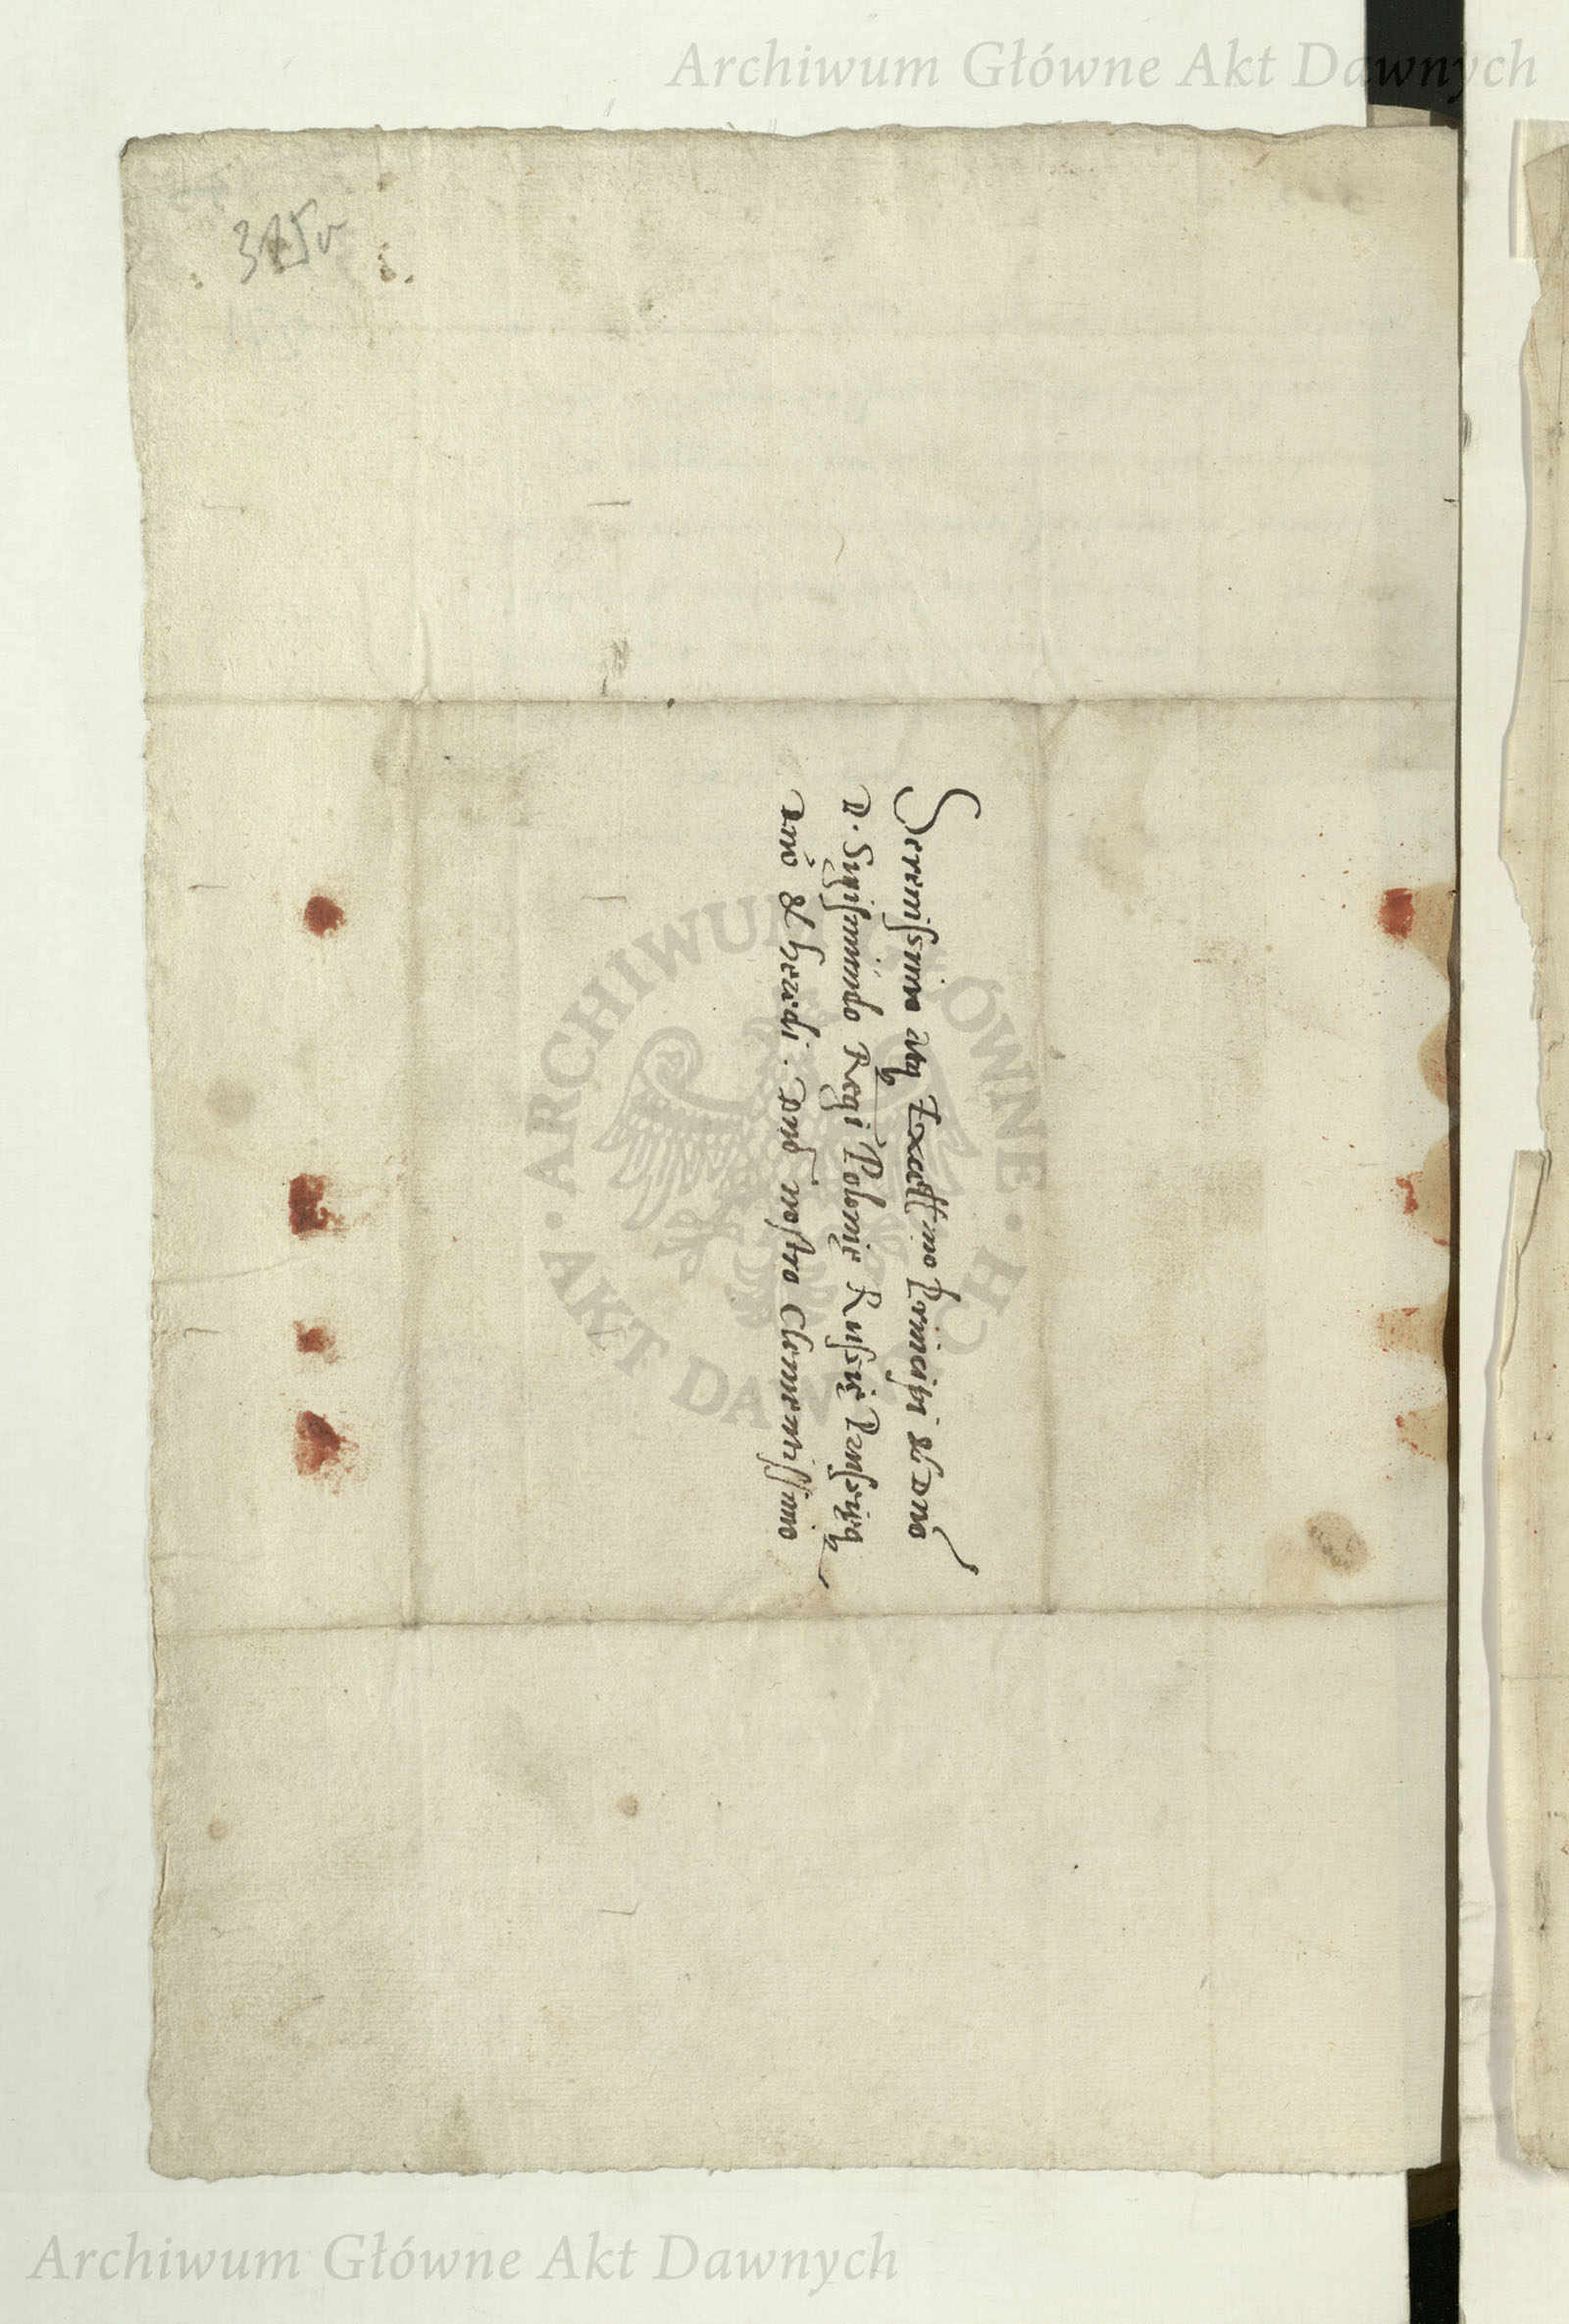 Archiwum Główne Akt Dawnych
315v
Serenissimo atq Excell^mo Principi & Dno
D. Sigismundo Regi Polonię Russię Prussięq
dno & heredi. Dno nostro Clementissimo
ARCHIWUM GŁÓWNE
AKT DAWNYCH
Archiwum Główne Akt Dawnych